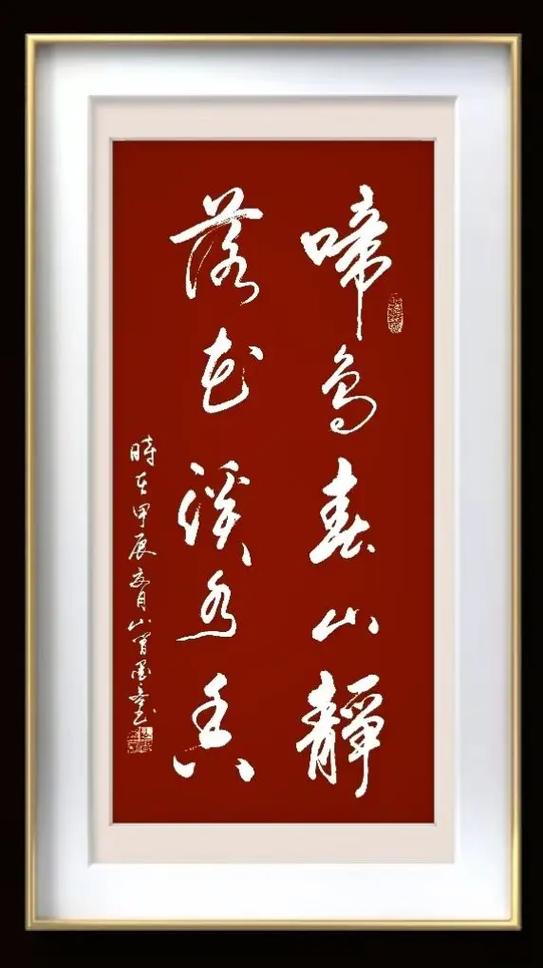 啼鳥春山靜
落花溪水香
時在甲辰